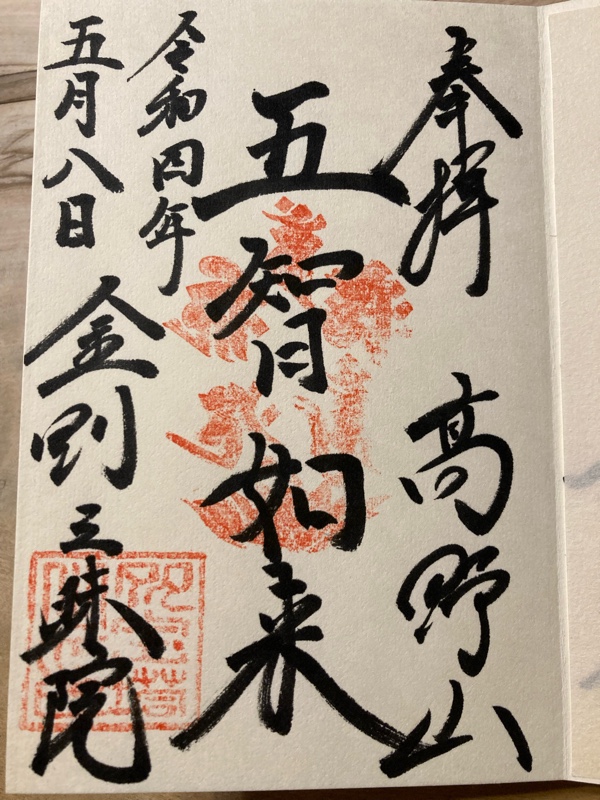 奉拝 高野山
五智如来
令和四年
五月八日
金剛三昧院